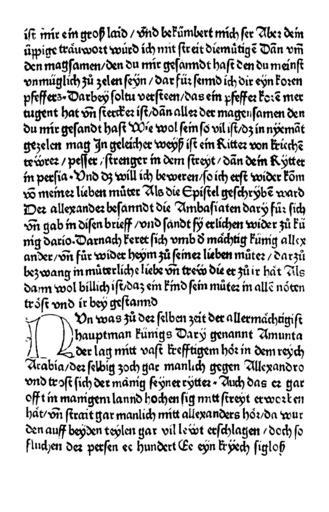 ist mir ein groß laid / vnd bekümbert mich ser Aber dein
üppige träuwort würd ich mit streit diemütige Dañ vm̄
den magsamen / den du mir gesanndt hast den du meinst
vnmüglich zů zelen seyn / dar für sennd ich dir eyn koren
pfeffers. Darbey soltu versteen / das ein pfeffer korē mer
tugent hat vn̄ stercker ist / dañ aller der magensamen den
du mir gesandt hast Wie wol sein so vil ist / dz in nyemāt
gezelen mag Jn geleicher weyß ist ein Ritter von kriechē
tewrer / pesser / strenger in dem streyt / dañ dein Rytter
in persia. Vnd dz will ich beweren / so ich erst wider kom
vō meiner lieben můter Als die Epistel geschrybē ward
Der allexander besanndt die Ambasiaten darÿ für sich
vn̄ gab in disen brieff / vnd sandt sy erlichen wider zů kü
nig dario. Darnach keret sich vmb d mächtig künig allex
ander / vn̄ für wider heym zů seiner lieben můter / dar zů
bezwang in můterliche liebe vn̄ trew die er zů ir hāt Als
dañ wol billich ist / daz ein kind sein můter in allē nötten
tröst vnd ir bey gestannd
NVn was zů der selben zeit der allermächtigist
hauptman künigs Darÿ genannt Amunta
der lag mitt vast krefftigem hör in dem reych
Arabia / der selbig zoch gar manlich gegen Allexandro
vnd trost sich der mänig seyner rytter. Auch das er gar
offt in manigem lannd hochen sig mitt streyt erworben
hāt / vn̄ strait gar manlich mitt allexanders hör / da wur
den auff beyden teylen gar vil lewt erschlagen / doch so
fluchen der persen ec hundert Ee eyn kryech sigloß